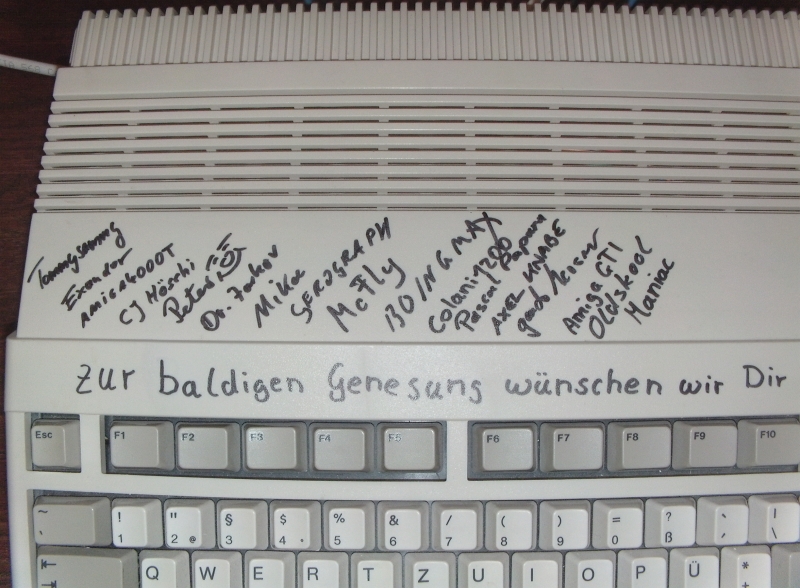 Exondor
AMIGA4000T
CJ Höschi
Peter
Dr. Zarkov
Mika
SEROGRAPH
McFly
BOINGMAX
Colani1200
Pascal Papara
AXEL KNABE
Amiga GTI
Oldskool
Maniac
Zur baldigen Genesung wünschen wir Dir
Esc F1 F2 F3 F4 F5 F6 F7 F8 F9 F10
~ ! " § $ % & / ( ) = ? ` |
1 2 @ 3 4 5 6 7 8 9 0 ß ´ \
Q W E R T Z U I O P Ü *
+